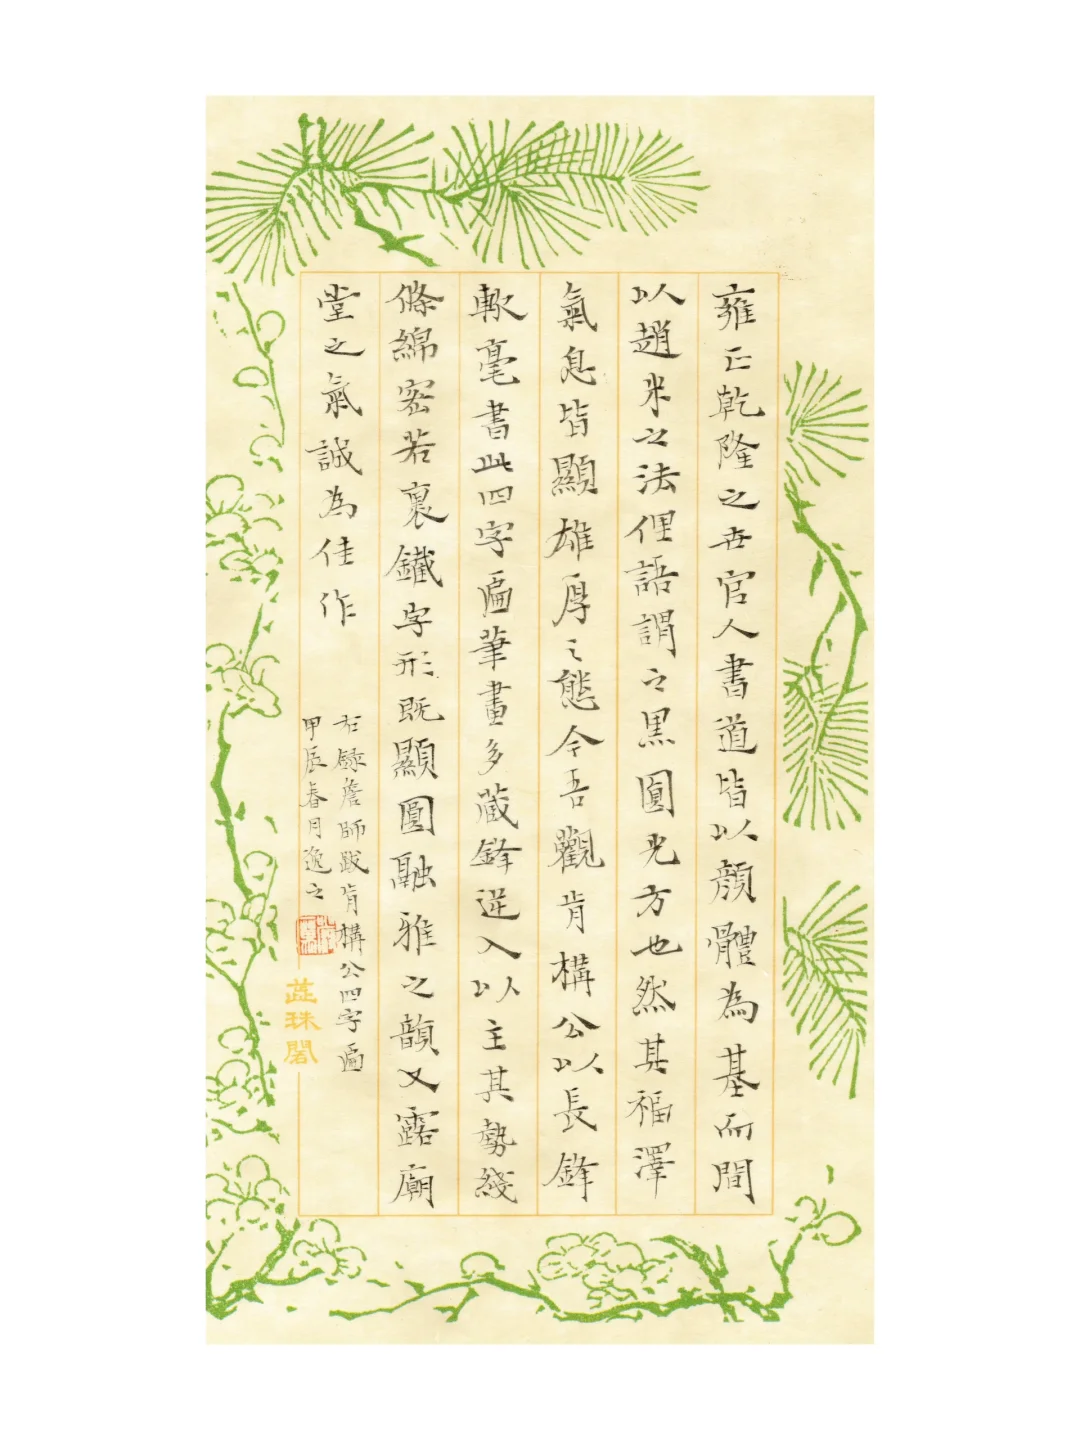 雍正乾隆之世官人書道皆以顏體為基而間
以趙米之法俚語謂之黑圓光方也然其福澤
氣息皆顯雄厚之態今吾觀肯構公以長鋒
軟毫書此四字匾筆畫多藏鋒逆入以主其勢綫
條綿密若裹鐵字形既顯圓融雅之韻又露廟
堂之氣誠為佳作
右錄詹師跋肯構公四字匾
甲辰春月逸之
蕋珠閣